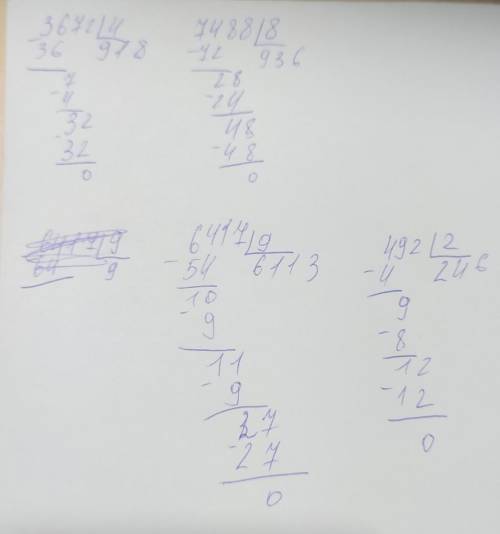 3672 4
-36 918
7
-4
32
-32
0
7488 8
-72 936
28
-24
48
-48
0
6417 9
64 9
6417 9
-54 6113
10
-9
11
-9
27
-27
0
492 2
-4 246
9
-8
12
-12
0